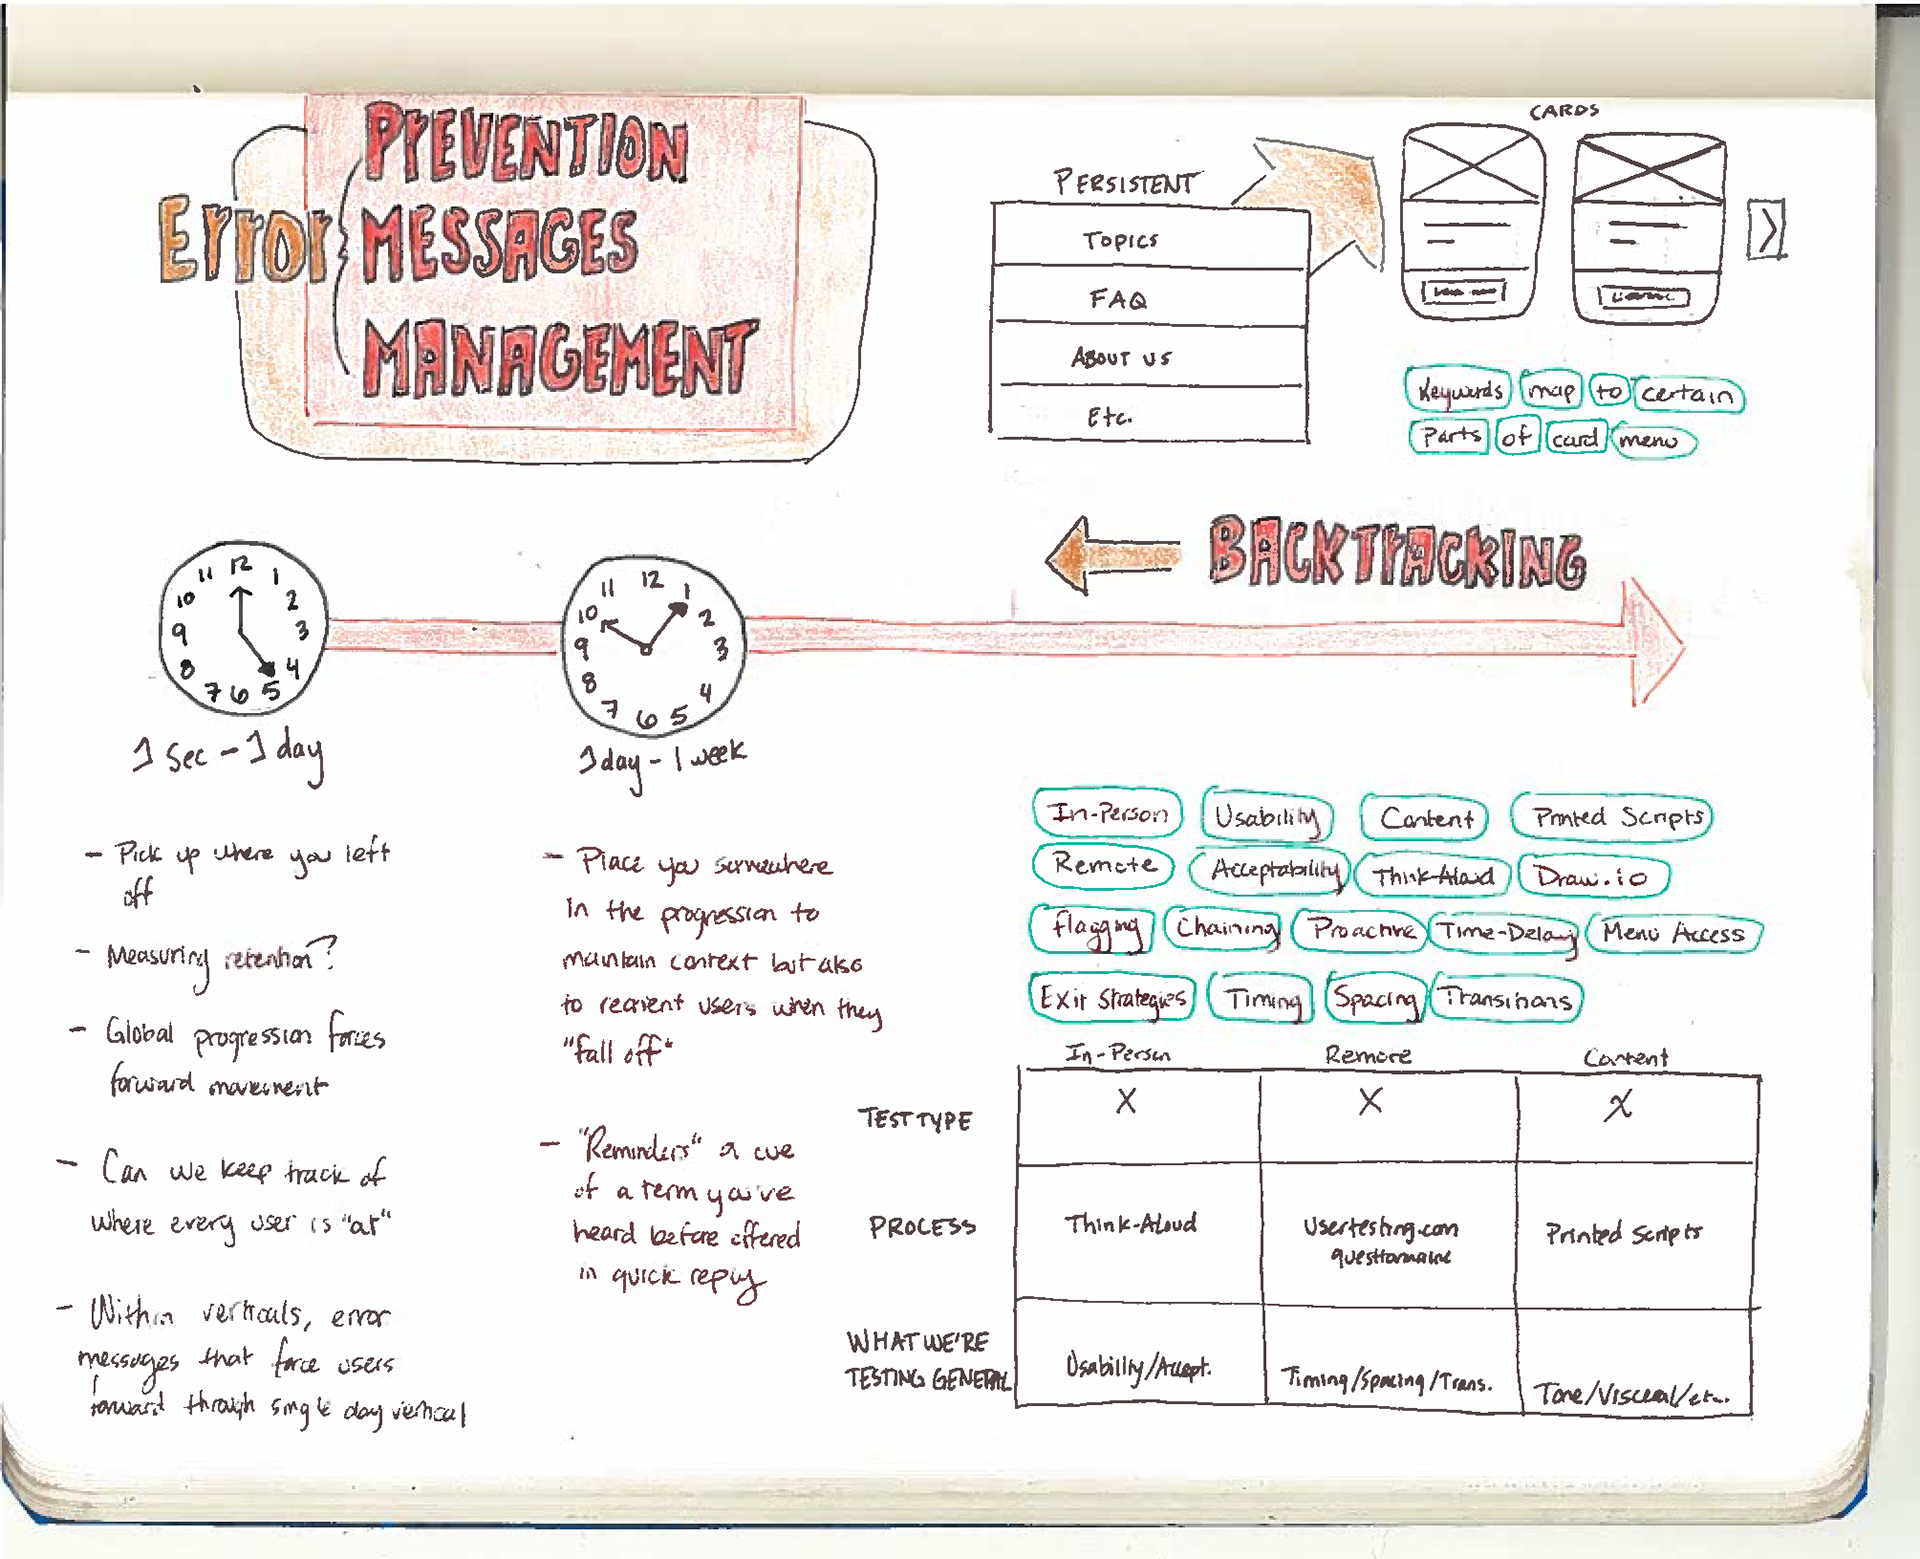 Error
PREVENTION
MESSAGES
MANAGEMENT
PERSISTENT
TOPICS
FAQ
ABOUT US
Etc.
CARDS
Keywords map to certain
Parts of card menu
BACKTRACKING
11 12 1
10 2
9 3
8 4
7 6 5
11 12 1
10 2
9 3
8 4
7 6 5
1 Sec - 1 day
1 day - 1 week
- Pick up where you left
off
- Measuring retention?
- Global progression forces
forward movement
- Can we keep track of
where every user is "at"
- Within verticals, error
messages that force users
forward through single day vertical
- Place you somewhere
in the progression to
maintain context but also
to reorient users when they
"fall off"
- "Reminders" a cue
of a term you've
heard before offered
in quick reply
In-Person Usability Content Printed Scripts
Remote Acceptability Think-Aloud Draw.io
flagging Chaining Proactive Time-Delay Menu Access
Exit Strategies Timing Spacing Transitions
In-Person Remote Content
TEST TYPE X X X
PROCESS Think-Aloud Usertesting.com Printed Scripts
questionnaire
WHAT WE'RE
TESTING GENERAL Usability/Accept. Timing/Spacing/Trans. Tone/Visceral/etc.